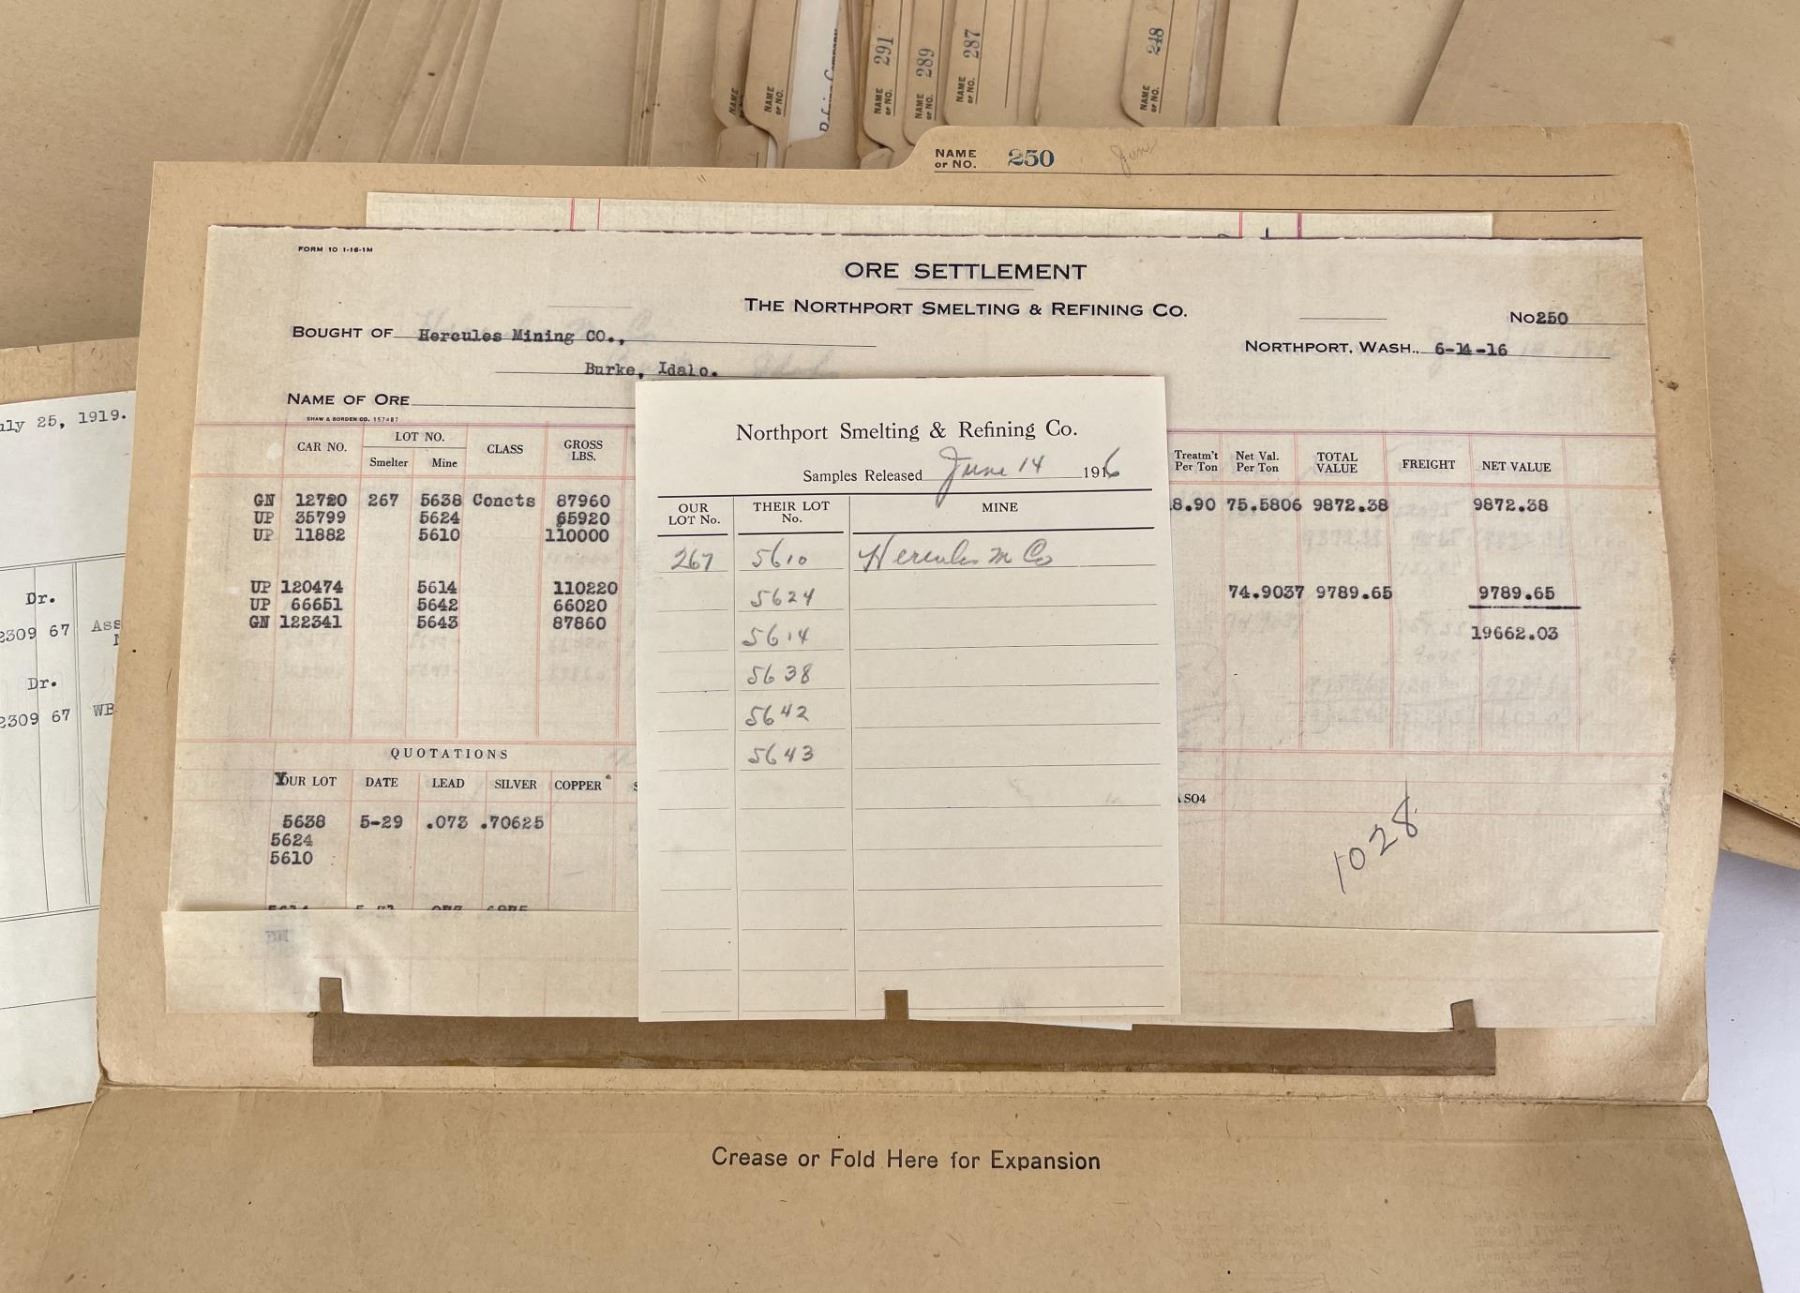 NAME or NO.
NAME or NO.
NAME or NO. 291
NAME or NO. 289
NAME or NO. 287
NAME or NO. 248
NAME or NO. 250
FORM 10 1-16-1M
ORE SETTLEMENT
THE NORTHPORT SMELTING & REFINING CO.
No250
BOUGHT OF Hercules Mining CO.,
NORTHPORT, WASH., 6-14-16
Burke, Idaho.
NAME OF ORE
SHAW & BORDEN CO. 157487
CAR NO. LOT NO. CLASS GROSS LBS. Treatm't Per Ton Net Val. Per Ton TOTAL VALUE FREIGHT NET VALUE
Smelter Mine
GN 12720 267 5638 Concts 87960 8.90 75.5806 9872.38 9872.38
UP 35799 5624 65920
UP 11882 5610 110000
UP 120474 5614 110220 74.9037 9789.65 9789.65
UP 66651 5642 66020
GN 122341 5643 87860 19662.03
QUOTATIONS
YOUR LOT DATE LEAD SILVER COPPER
SO4
5638 5-29 .073 .70625
5624
5610
1028
Northport Smelting & Refining Co.
Samples Released June 14 1916
OUR LOT No. THEIR LOT No. MINE
267 5610 Hercules M Co
5624
5614
5638
5642
5643
uly 25, 1919.
Dr.
2309 67 Ass
Dr.
2309 67 WB
Crease or Fold Here for Expansion